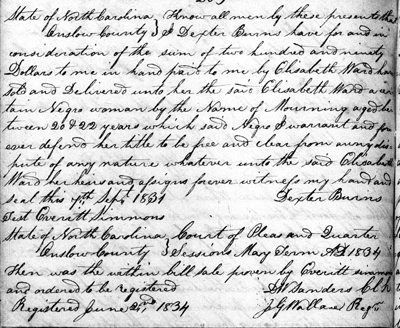 State of North Carolina } Know all men by these presents that
Onslow County } I Dexter Burns have for and in
consideration of the sum of two hundred and ninety
Dollars to me in hand paid to me by Elisabeth Ward have
sold and Delivered unto her the said Elisabeth Ward a cer
tain Negro woman by the Name of Mourning aged be
tween 20 & 22 years which said Negro I warrant and for
ever defend her title to be free and clear from any dis
pute of any nature whatever unto the said Elisabeth
Ward her heirs and assigns forever witness my hand and
seal this 7th Sept 1831
Dexter Burns
Test Everett Simmons
State of North Carolina } Court of Pleas and Quarter
Onslow County } Sessions May Term AD 1834
Then was the within bill sale proven by Everitt Simmons
and ordered to be registered
Sanders Clk
Registered June 2nd 1834
J G Wallace Regr